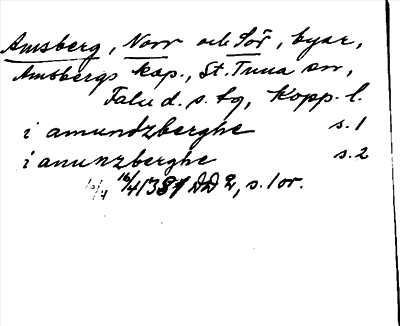 Amsberg, Norr och Sör, byar,
Amsbergs kap., St. Tuna sn,
Falu d. s. tg, Kopp. l.
i amundzberghe s. 1
i anunzberghe s. 2
16/4 1387 DD 2, s. 1 or.